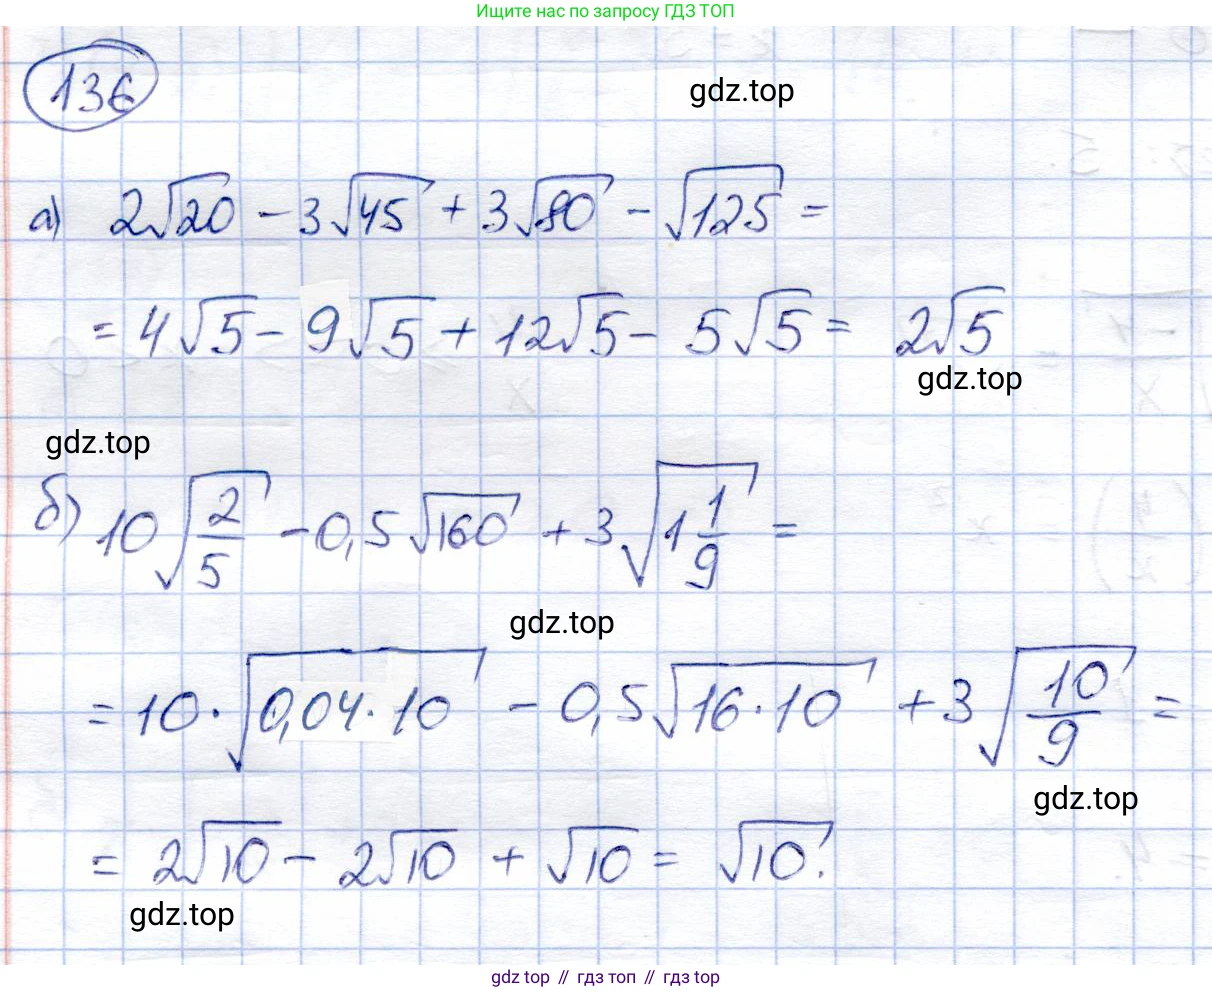 Ищите нас по запросу ГДЗ ТОП
136
gdz.top
а) 2√20 - 3√45 + 3√80 - √125 =
= 4√5 - 9√5 + 12√5 - 5√5 = 2√5
gdz.top
gdz.top
б) 10√(2/5) - 0,5√160 + 3√(1 1/9) =
gdz.top
= 10·√(0,04·10) - 0,5√(16·10) + 3√(10/9) =
gdz.top
= 2√10 - 2√10 + √10 = √10.
gdz.top
gdz top // гдз топ // гдз top